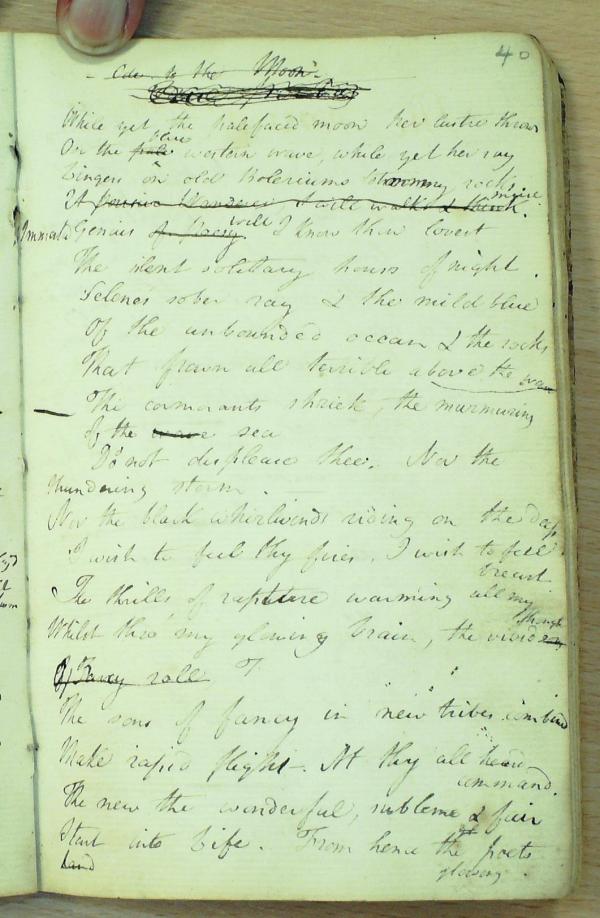 40
Ode to the Moon
While yet the palefaced moon her lustre throws
Or the pale pure western wave, while yet her ray
Lingers on old Boleriums rocks
I will walk & think. muse
Immortal Genius of Poesy will I know thou lovest
The silent solitary hours of night.
Selenes sober ray & the mild blue
Of the unbounded ocean & the rocks
That frown all terrible above the wave
The cormorants shriek, the murmuring
Of the wave sea
Do not displease thee. Nor the
thundering storm.
Nor the black whirlwinds riding on the deep
I wish to feel thy fires. I wish to feel
The thrills of rapture warming all my breast
Whilst thro' my glowing brain, the vivid thought
Of Fancy roll
The sons of fancy in new tribes combined
Make rapid flight. At thy all heard command.
The new the wonderful, sublime & fair
Start into Life. From hence the poets
hand glowing.